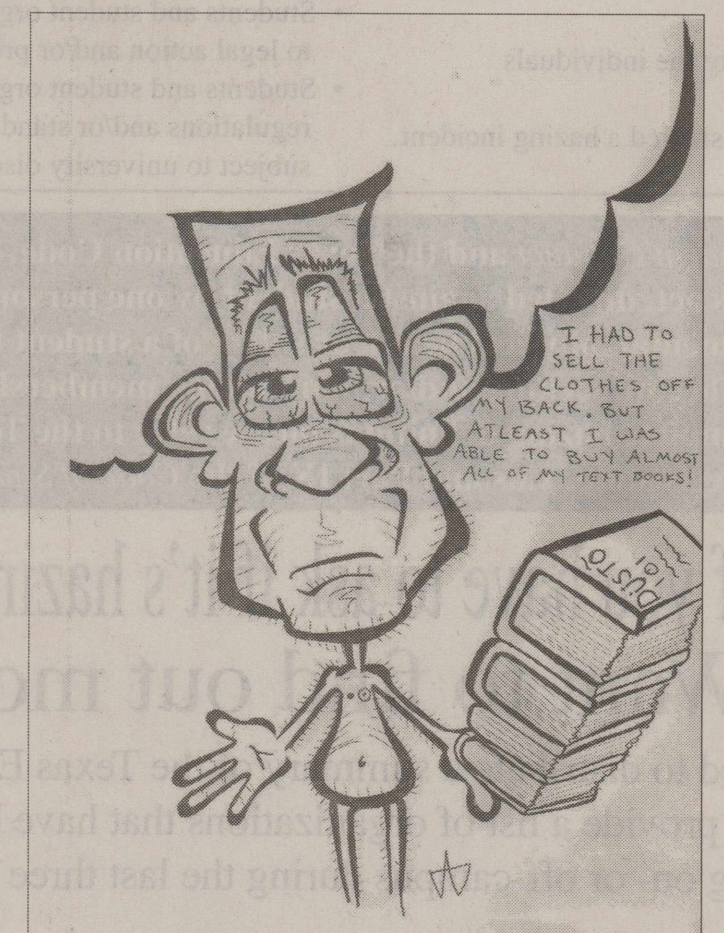 I HAD TO
SELL THE
CLOTHES OFF
MY BACK. BUT
ATLEAST I WAS
ABLE TO BUY ALMOST
ALL OF MY TEXT BOOKS!
DUSTO
101